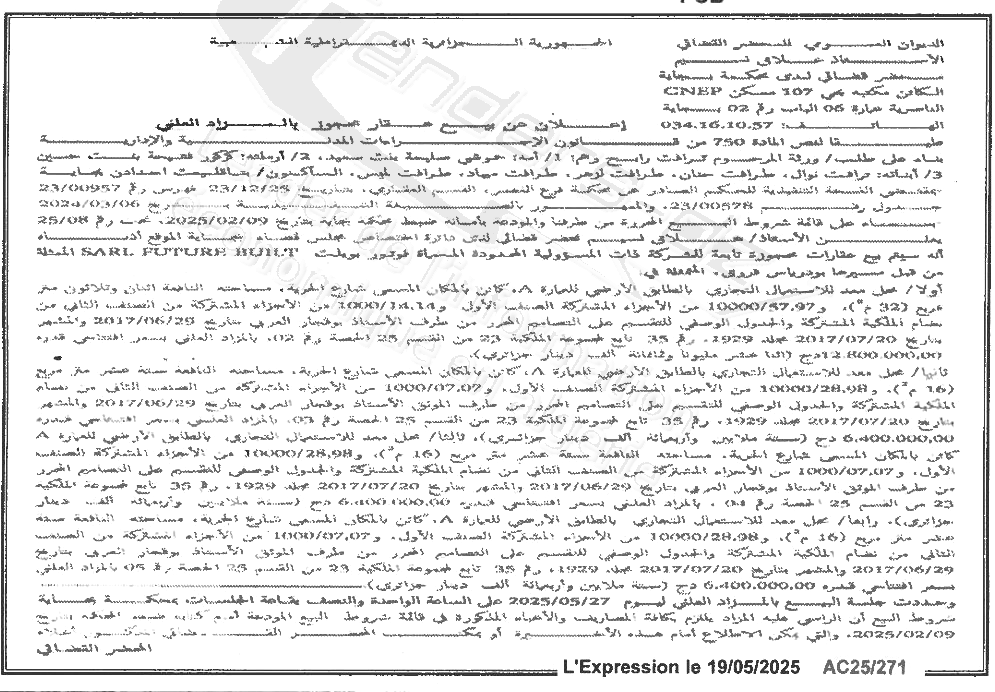 الجمهورية الجزائرية الديمقراطية الشعبية
الديوان العمومي للمحضر القضائي
الأستاذ علاقي نسيم
محضر قضائي لدى محكمة بجاية
الكائن مكتبه بحي 107 مسكن CNEP
الناصرية عمارة 06 الباب رقم 02 بجاية
الهاتف: 034.16.10.57
إعلان عن بيع عقار محجوز بالمزاد العلني
طبقا لنص المادة 750 من قانون الإجراءات المدنية والإدارية
بناء على طلب/ ورثة المرحوم رابح وهم: 1/ أمه: صليحة بنت سعيد، 2/ أرملته: فضيحة بنت حسين
3/ أبنائه: نوال، طرافت حنان، طرافت طرافت طرافت
بمقتضى النسخة التنفيذية للحكم الصادر عن محكمة القسم العقاري، بتاريخ 23/12/25 فهرس رقم 23/00957
جدول رقم 23/00578، والممهور بالصيغة التنفيذية بتاريخ 2024/03/06
بناء على قائمة شروط البيع المحررة من طرفنا والمودعة بأمانة ضبط محكمة بجاية بتاريخ 2025/02/09، تحت رقم 25/08
يعلن الأستاذ/ علاقي نسيم محضر قضائي لدى دائرة اختصاص مجلس قضاء بجاية الموقع أدناه
أنه سيتم بيع عقارات محجوزة تابعة للشركة ذات المسؤولية المحدودة المسماة فوتور بويلت SARL FUTURE BUILT الممثلة
من قبل مسيرها المتمثلة في:
أولا/ محل معد للاستعمال التجاري بالطابق الأرضي للعمارة A، كائن بالمكان المسمى شارع الحرية، مساحته النافعة اثنان وثلاثون متر
مربع (32 م²)، و10000/57.97 من الأجزاء المشتركة الصنف الأول و1000/14.14 من الأجزاء المشتركة من الصنف الثاني من
نظام الملكية المشتركة والجدول الوصفي للتقسيم على التصاميم المحرر من طرف الأستاذ بوقجار العربي بتاريخ 2017/06/29 والمشهر
بتاريخ 2017/07/20 مجلد 1929، رقم 35 تابع لمجموعة الملكية 23 من القسم 25 الحصة رقم 02، بالمزاد العلني بسعر افتتاحي قدره
12.800.000,00دج (اثنا عشر مليونا وثمانمائة ألف دينار جزائري).
ثانيا/ محل معد للاستعمال التجاري بالطابق الأرضي للعمارة A، كائن بالمكان المسمى شارع الحرية، مساحته النافعة ستة عشر متر مربع
(16 م²)، و10000/28,98 من الأجزاء المشتركة الصنف الأول، و1000/07,07 من الأجزاء المشتركة من الصنف الثاني من نظام
الملكية المشتركة والجدول الوصفي للتقسيم على التصاميم المحرر من طرف الموثق الأستاذ بوقجار العربي بتاريخ 2017/06/29 والمشهر
بتاريخ 2017/07/20 مجلد 1929، رقم 35 تابع لمجموعة الملكية 23 من القسم 25 الحصة رقم 03، بالمزاد العلني بسعر افتتاحي قدره
6.400.000,00 دج (ستة ملايين وأربعمائة ألف دينار جزائري)، ثالثا/ محل معد للاستعمال التجاري بالطابق الأرضي للعمارة A
كائن بالمكان المسمى شارع الحرية، مساحته النافعة ستة عشر متر مربع (16 م²)، و10000/28,98 من الأجزاء المشتركة الصنف
الأول، و1000/07,07 من الأجزاء المشتركة الصنف الثاني من نظام الملكية المشتركة والجدول الوصفي للتقسيم على التصاميم المحرر
من طرف الموثق الأستاذ بوقجار العربي بتاريخ 2017/06/29 والمشهر بتاريخ 2017/07/20 مجلد 1929، رقم 35 تابع لمجموعة الملكية
23 من القسم 25 الحصة رقم 04، بالمزاد العلني بسعر افتتاحي قدره 6.400.000,00 دج (ستة ملايين وأربعمائة ألف دينار
جزائري)، رابعا/ محل معد للاستعمال التجاري بالطابق الأرضي للعمارة A، كائن بالمكان المسمى شارع الحرية، مساحته النافعة ستة
عشر متر مربع (16 م²)، و10000/28,98 من الأجزاء المشتركة الصنف الأول، و1000/07,07 من الأجزاء المشتركة من الصنف
الثاني من نظام الملكية المشتركة والجدول الوصفي للتقسيم على التصاميم المحرر من طرف الموثق الأستاذ بوقجار العربي بتاريخ
2017/06/29 والمشهر بتاريخ 2017/07/20 مجلد 1929، رقم 35 تابع لمجموعة الملكية 23 من القسم 25 الحصة رقم 05 بالمزاد العلني
بسعر افتتاحي قدره 6.400.000,00 دج (ستة ملايين وأربعمائة ألف دينار جزائري)
وحددت جلسة البيع بالمزاد العلني ليوم 2025/05/27 على الساعة الواحدة والنصف بقاعة الجلسات بمحكمة بجاية
شروط البيع أن الراسي عليه المزاد يلتزم بكافة المصاريف والأعباء المذكورة في قائمة شروط البيع المودعة أمام كتابة ضبط المحكمة بتاريخ
2025/02/09، والتي يمكن الاطلاع أمام هذه الأخيرة أو بمكتب المحضر القضائي المذكور أعلاه
المحضر القضائي
L'Expression le 19/05/2025 AC25/271